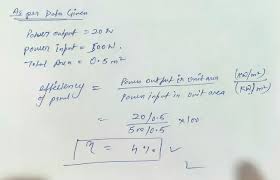 As per Data Given
Power output = 20W
power input = 500W.
Total Area = 0.5 m²
efficiency of panel = Power output in unit area (KW/m²) / Power input in unit area (KW/m²)
= 20/0.5 / 500/0.5 × 100
η = 4%